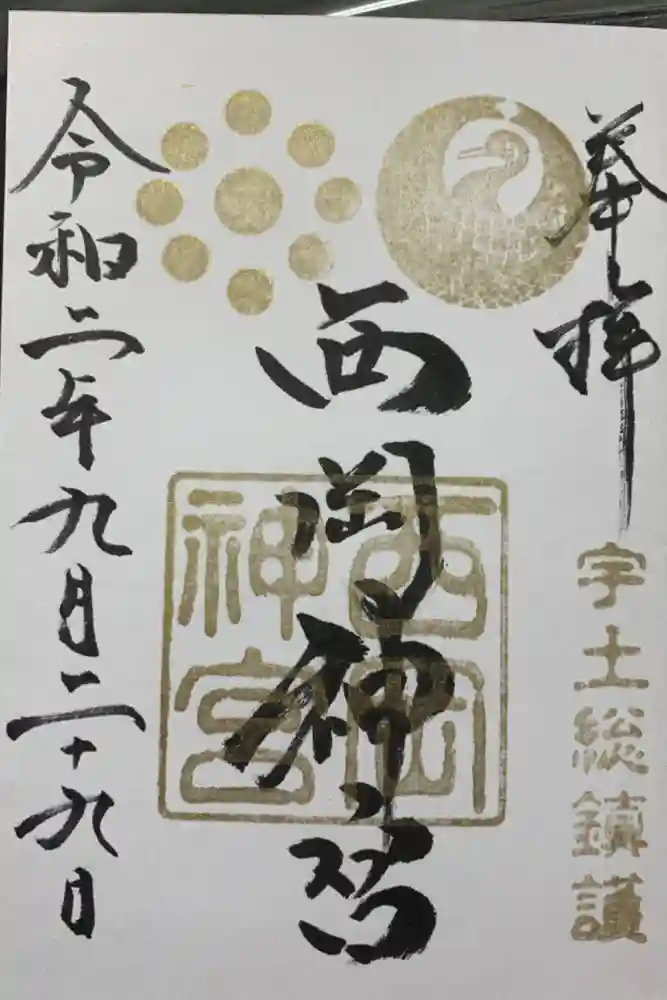 奉拝
宇土総鎮護
西岡神宮
西岡
神宮
令和二年九月二十九日